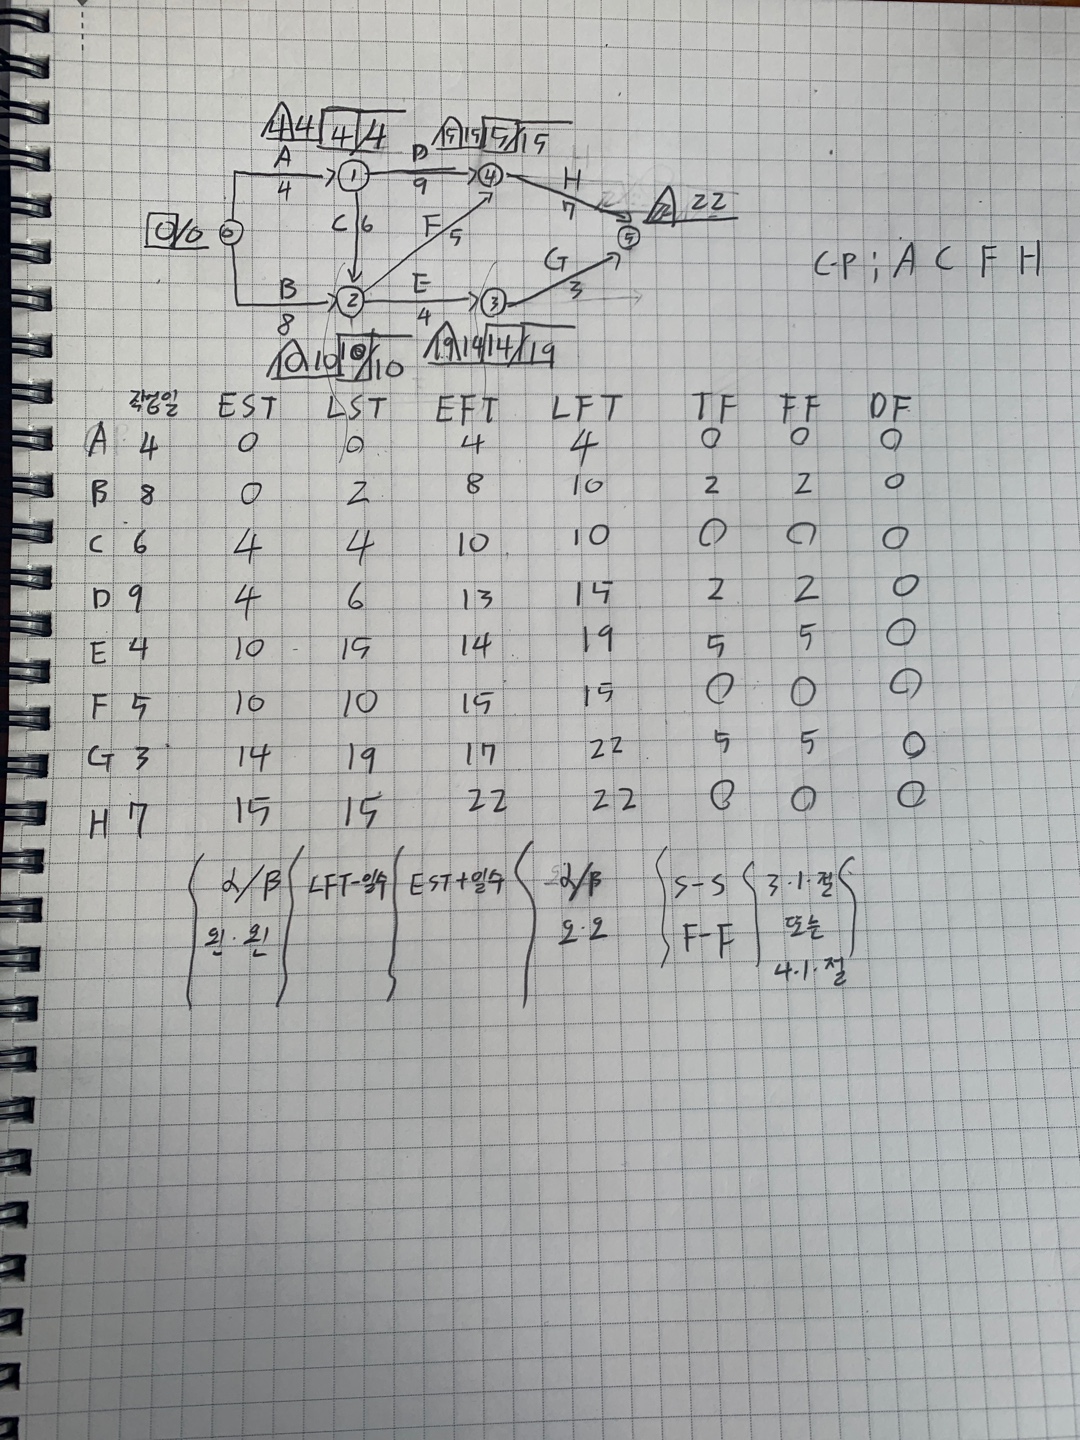 4 4 4/4 15 15 15/15
A D H
4 1 9 4 7 22
0/0 0 C 6 F 5 5
G C·P ; A C F H
B E 3
2 3
8 4
10 10 10/10 19 14 14/19
작업일 EST LST EFT LFT TF FF DF
A 4 0 0 4 4 0 0 0
B 8 0 2 8 10 2 2 0
C 6 4 4 10 10 0 0 0
D 9 4 6 13 15 2 2 0
E 4 10 15 14 19 5 5 0
F 5 10 10 15 15 0 0 0
G 3 14 19 17 22 5 5 0
H 7 15 15 22 22 0 0 0
α/β LFT-일수 EST+일수 α/β S-S 3·1·절
왼·왼 오·오 F-F 또는
4·1·절